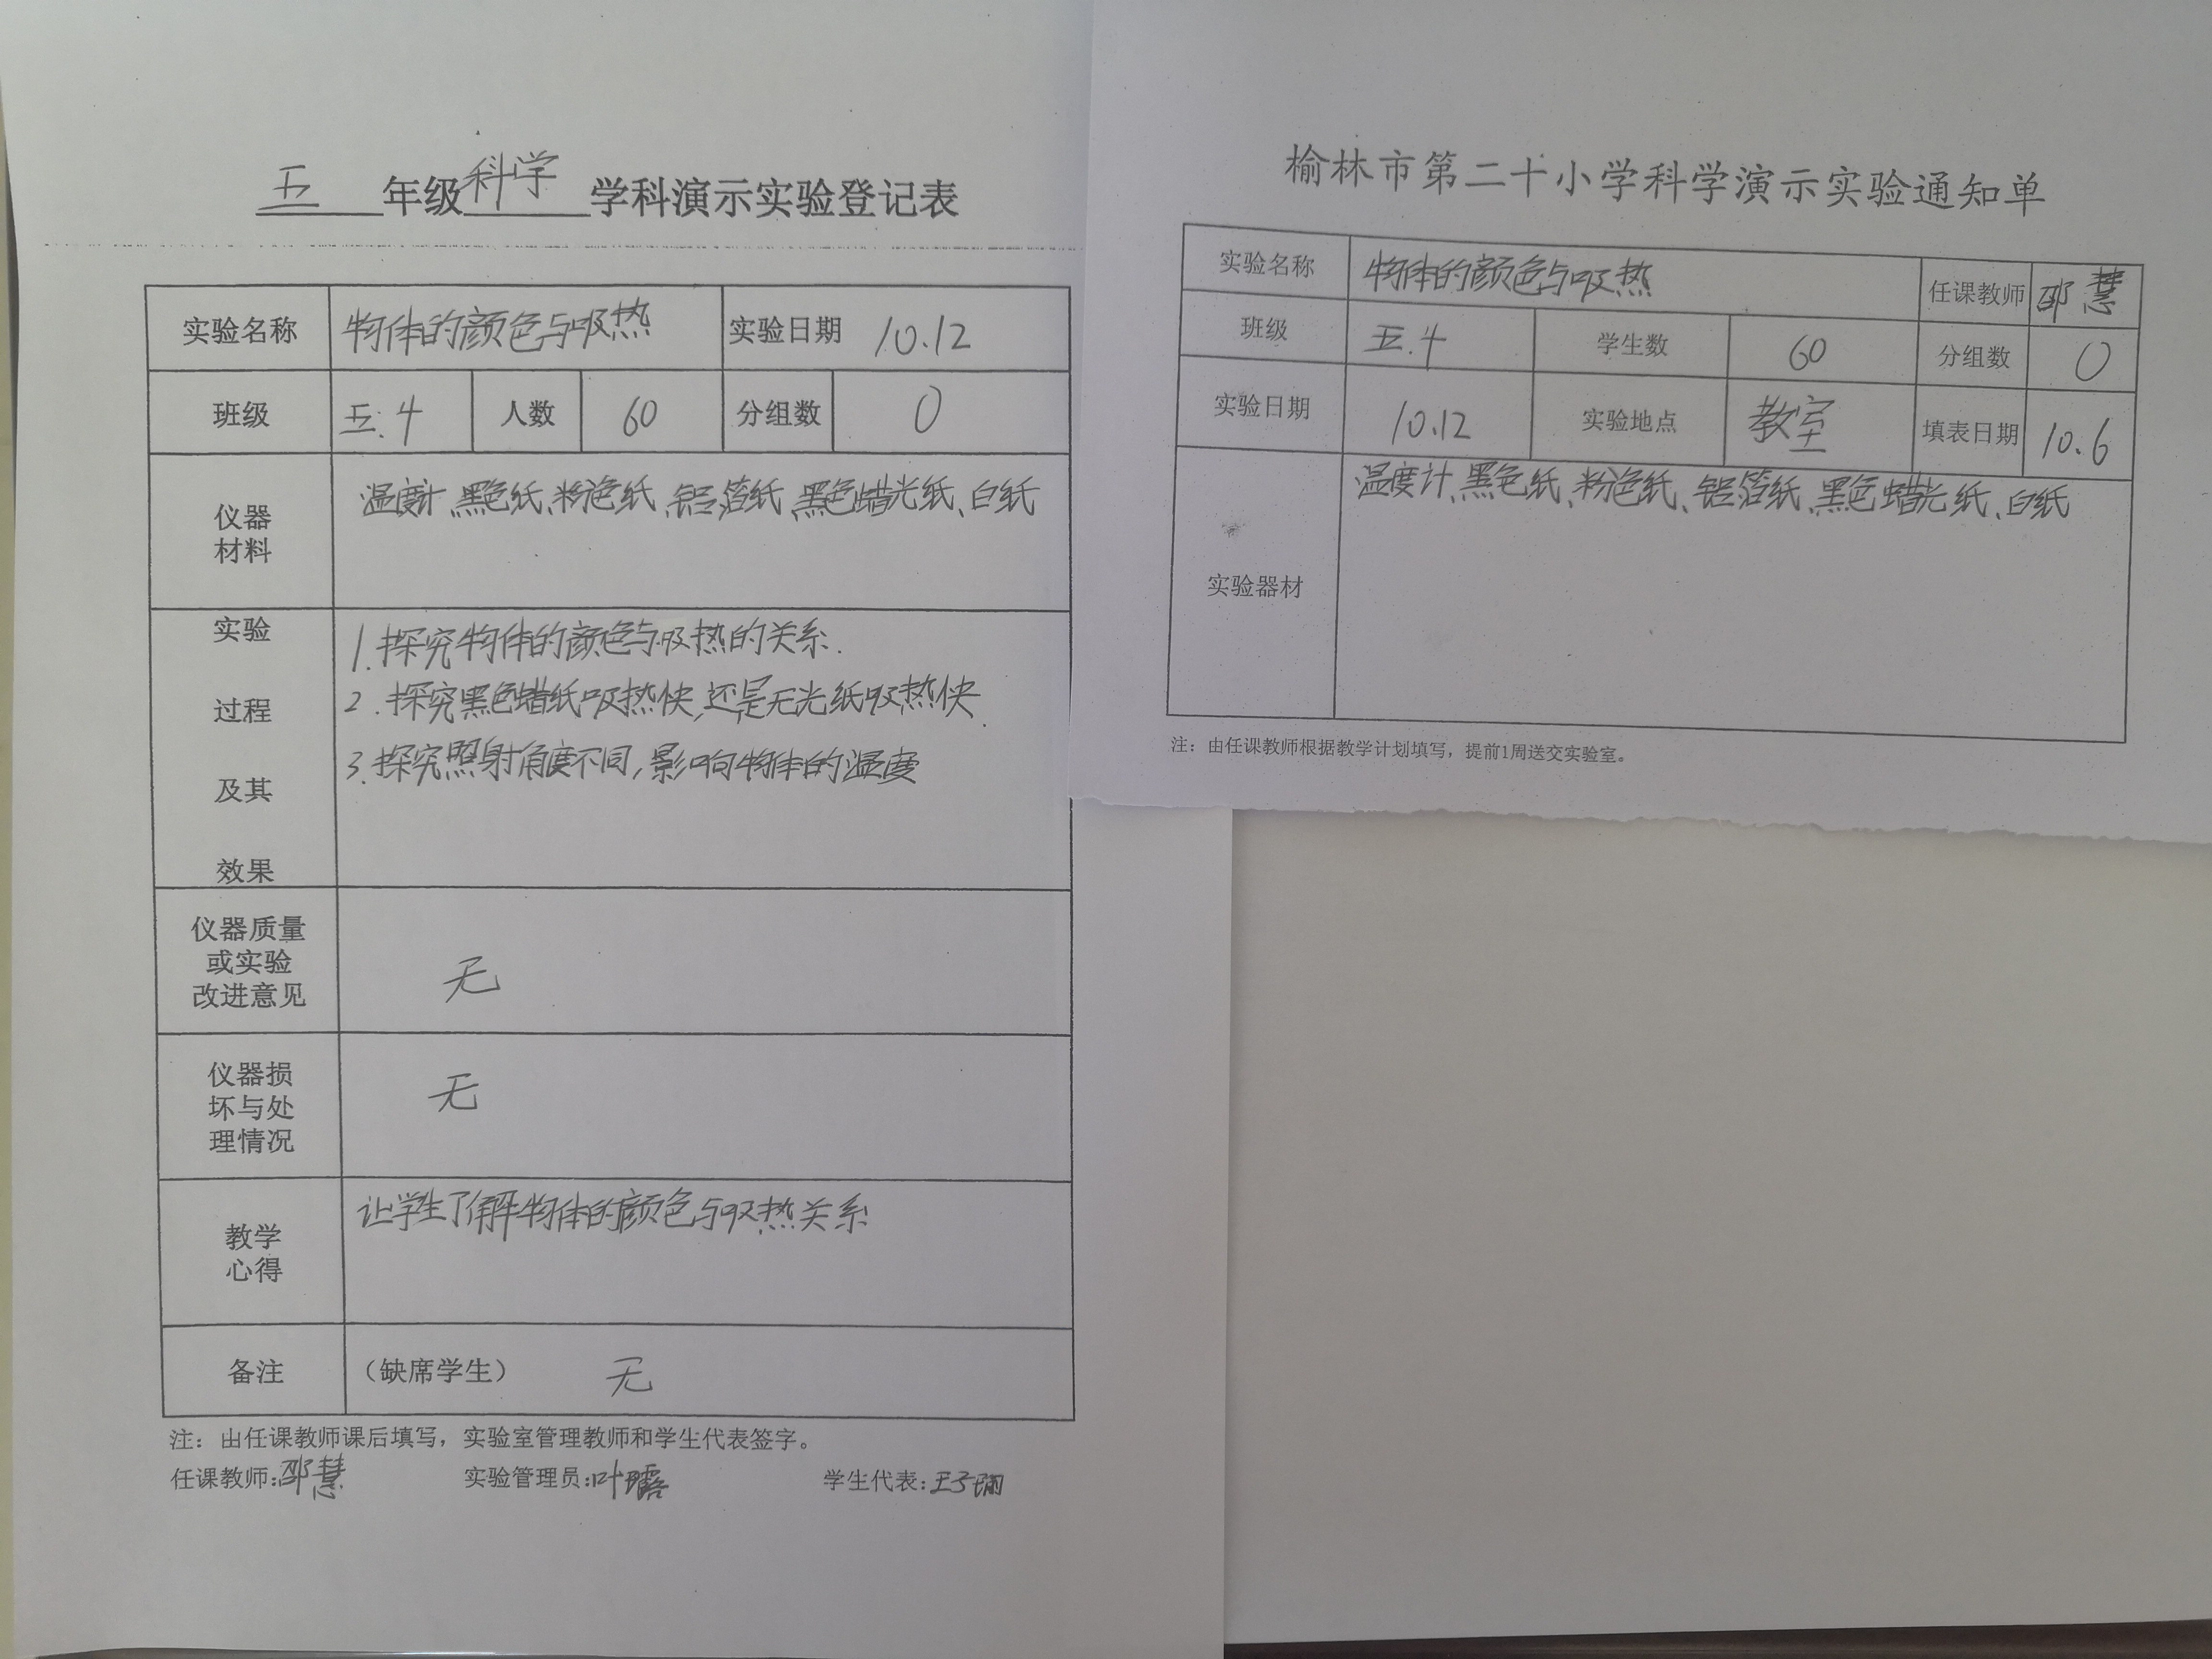 五 年级 科学 学科演示实验登记表
实验名称 物体的颜色与吸热 实验日期 10.12
班级 五.4 人数 60 分组数 0
仪器
材料
温度计、黑色纸、粉色纸、铝箔纸、黑色蜡光纸、白纸
实验
过程
及其
效果
1.探究物体的颜色与吸热的关系.
2.探究黑色蜡纸吸热快,还是无光纸吸热快.
3.探究照射角度不同,影响物体的温度
仪器质量
或实验
改进意见
无
仪器损
坏与处
理情况
无
教学
心得
让学生了解物体的颜色与吸热关系
备注 （缺席学生） 无
注：由任课教师课后填写，实验室管理教师和学生代表签字。
任课教师:邵慧 实验管理员:叶 学生代表:王子
榆林市第二十小学科学演示实验通知单
实验名称 物体的颜色与吸热 任课教师 邵慧
班级 五.4 学生数 60 分组数 0
实验日期 10.12 实验地点 教室 填表日期 10.6
实验器材
温度计、黑色纸、粉色纸、铝箔纸、黑色蜡光纸、白纸
注：由任课教师根据教学计划填写，提前1周送交实验室。